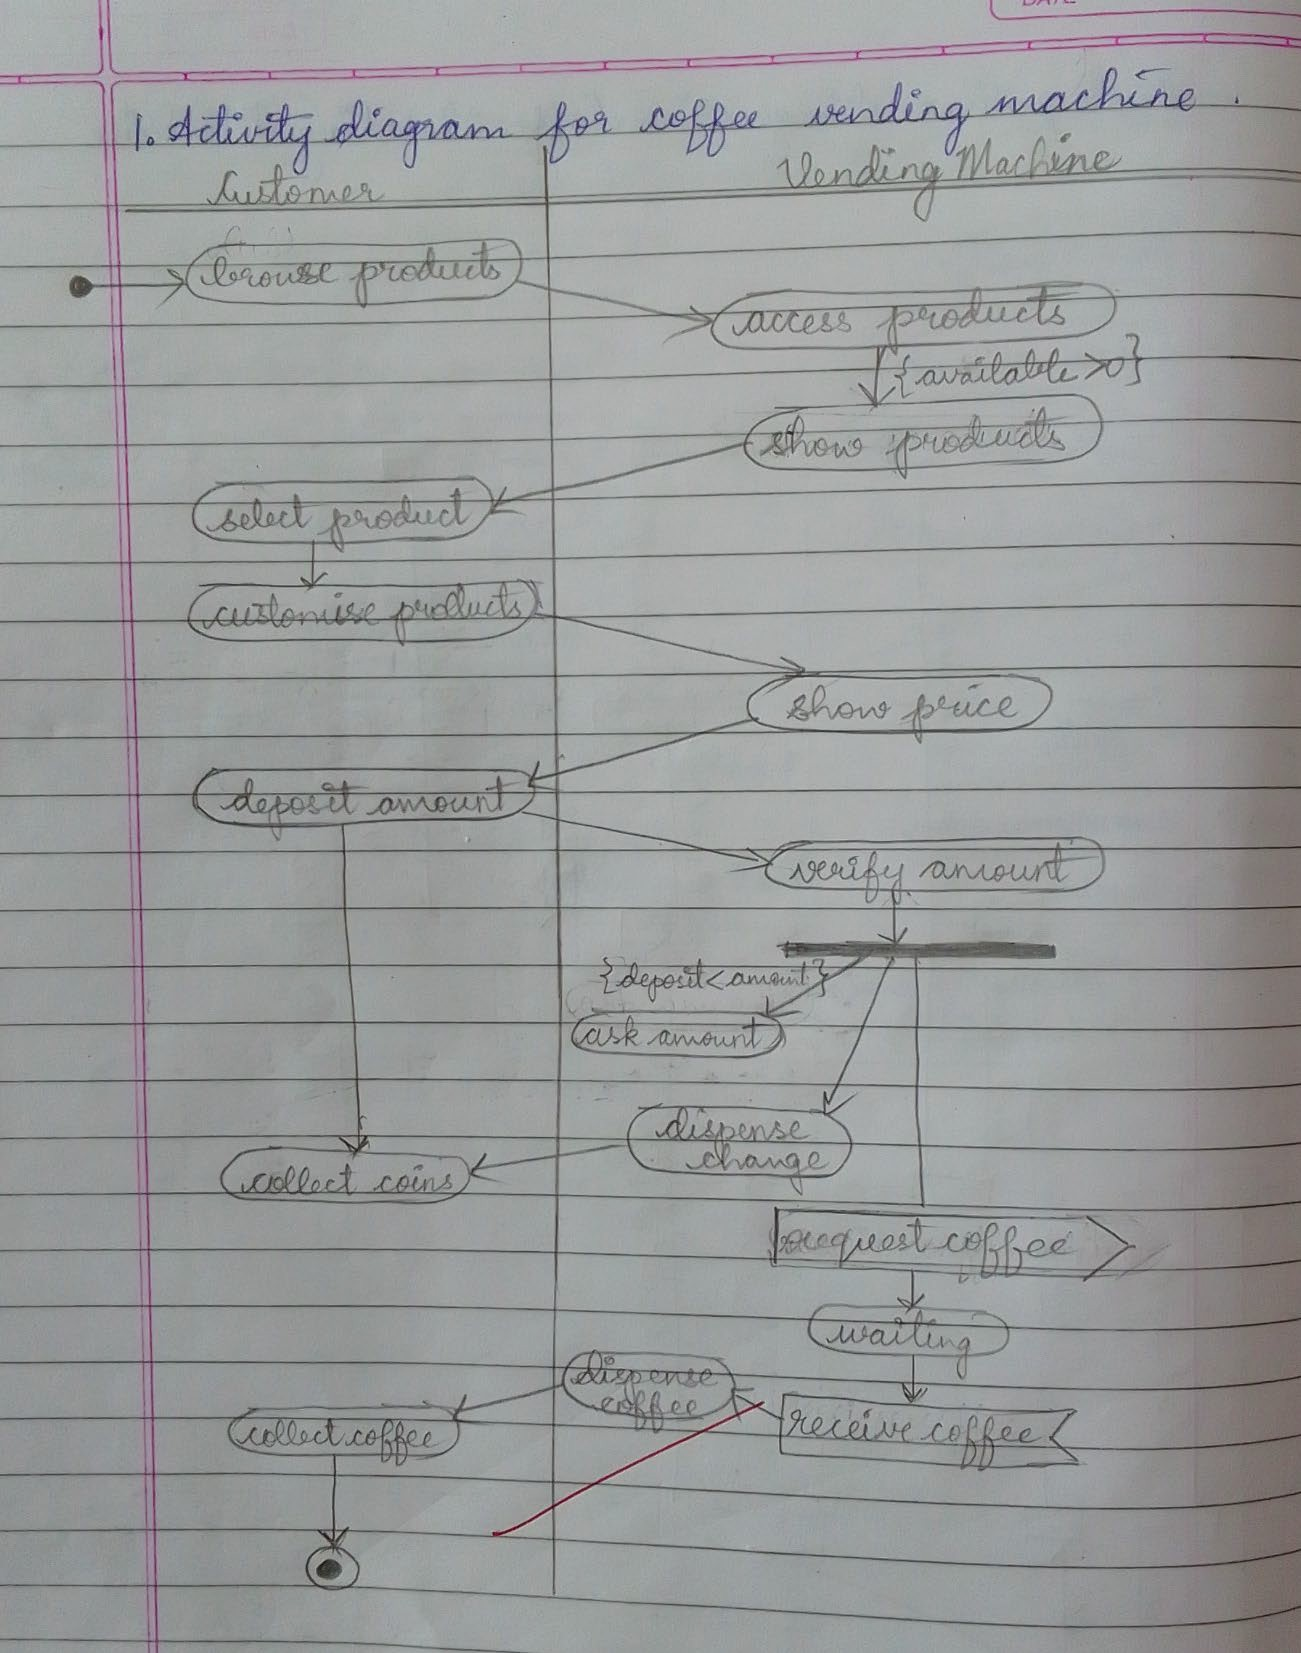 DATE
1. Activity diagram for coffee vending machine.
Customer
Vending Machine
browse products
access products
{available >0}
show products
select product
customise products
show price
deposit amount
verify amount
{deposit < amount}
ask amount
dispense
change
collect coins
request coffee
waiting
dispense
coffee
receive coffee
collect coffee